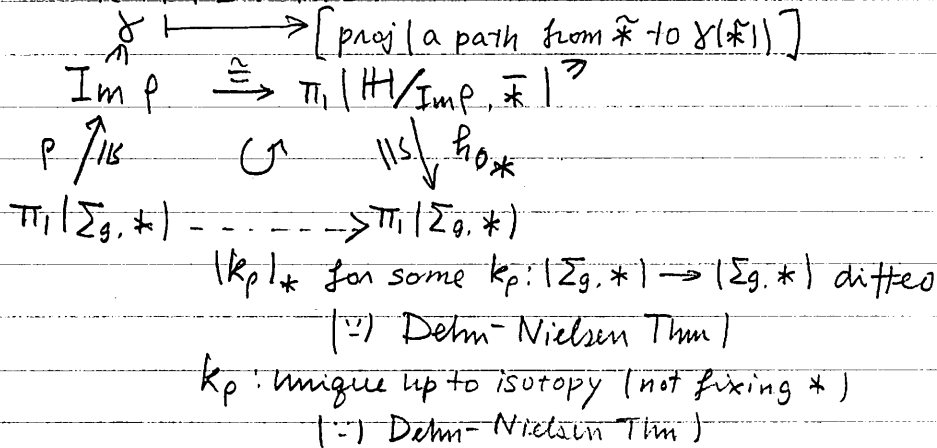 γ ⟼ [proj(a path from *̃ to γ(*̃))]
Im ρ ≅→ π₁(ℍ/Imρ, *̄)
ρ ↗ ≅ ↺ ≅ ↓ h₀*
π₁(Σg, *) - - - - - -> π₁(Σg, *)
(kρ)* for some kρ: (Σg, *) → (Σg, *) diffeo
(∵) Dehn-Nielsen Thm)
kρ : unique up to isotopy (not fixing *)
(∵) Dehn-Nielsen Thm)